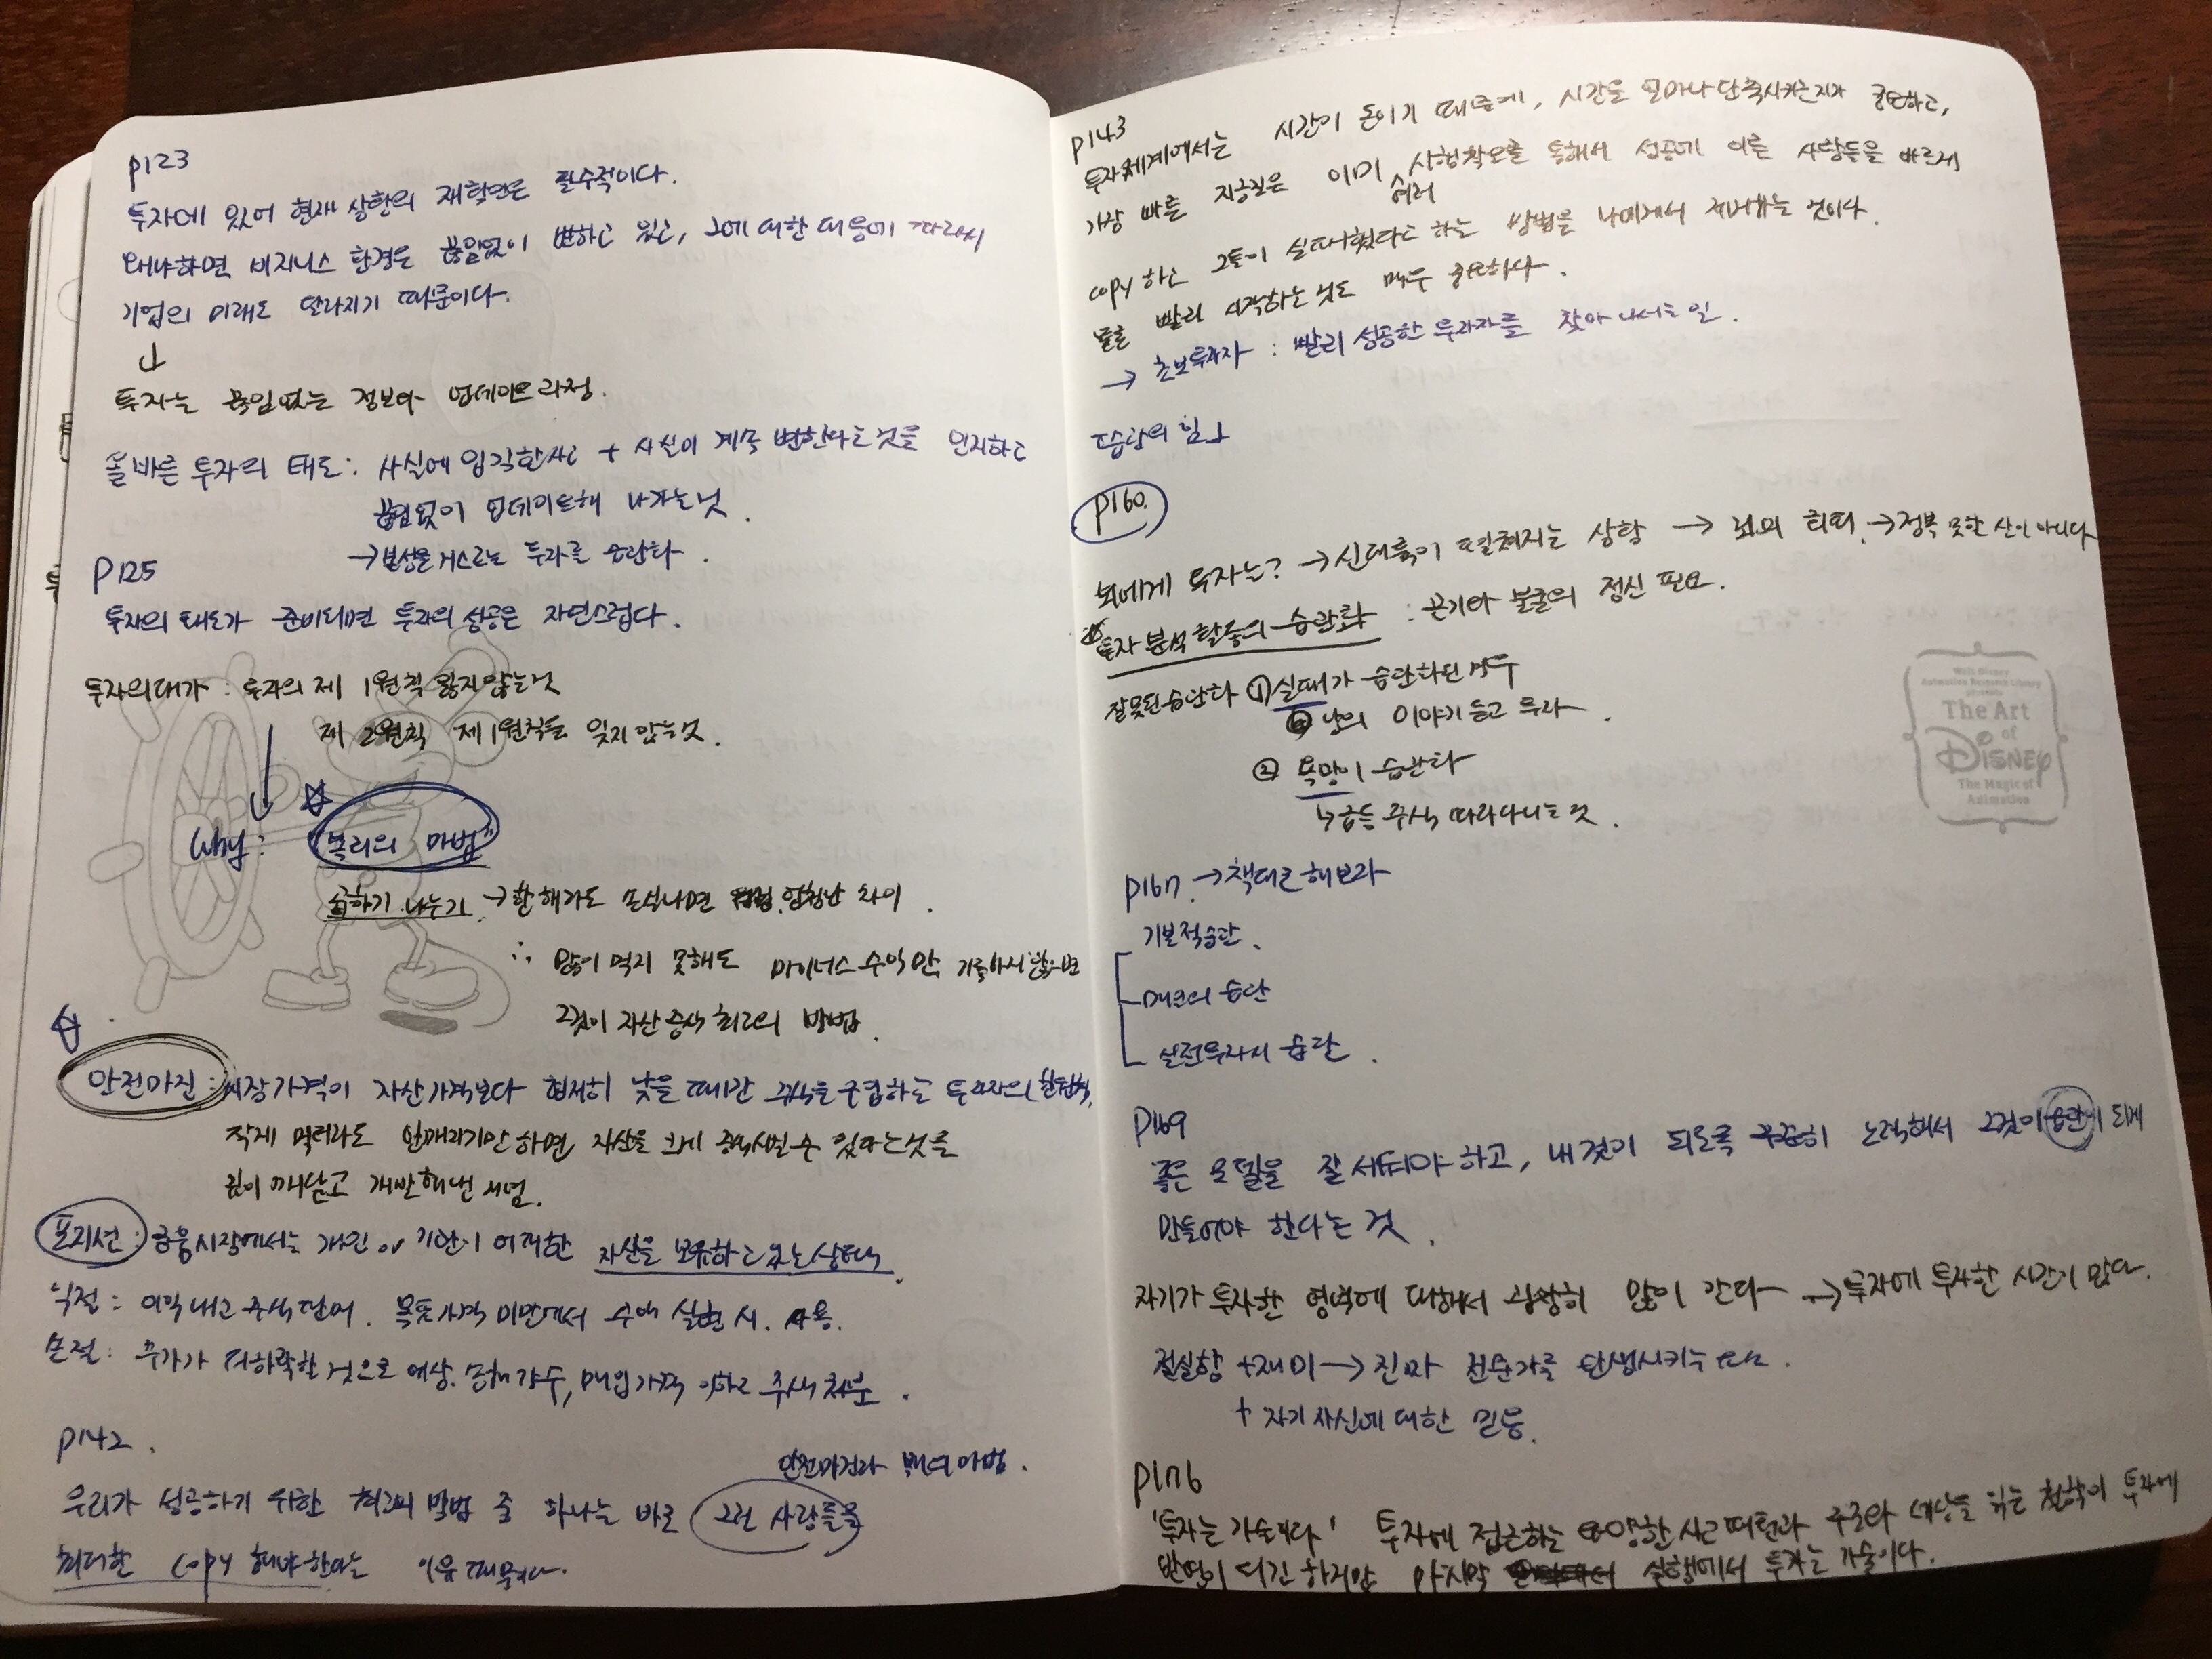 p123
투자에 있어 현재 상황의 재확인은 필수적이다.
왜냐하면 비지니스 환경은 끊임없이 변하고 있고, 그에 대한 대응에 따라서
기업의 미래도 달라지기 때문이다.
↓
투자는 끊임없는 정보와 업데이트 과정.
올바른 투자의 태도: 사실에 입각한 사고 + 사실이 계속 변한다는 것을 인지하고
끊임없이 업데이트해 나가는 것.
→ 본성을 거스르는 투자를 습관화.
p125
투자의 태도가 준비되면 투자의 성공은 자연스럽다.
투자의 대가 : 투자의 제 1원칙 잃지 않는 것
제 2원칙 제 1원칙을 잊지 않는 것.
Why: "복리의 마법"
곱하기 나누기 → 한 해라도 손실나면 엄청난 차이.
∴ 많이 먹지 못해도 마이너스 수익만 기록하지 않으면
그것이 자산 증식 최고의 방법.
안전마진: 시장가격이 자산가격보다 현저히 낮을 때만 주식을 구입하는 투자자의
작게 먹더라도 안깨지기만 하면, 자산을 크게 증식시킬 수 있다는 것을
깊이 깨닫고 개발해낸 개념.
포지션: 금융시장에서는 개인 or 기관이 어떠한 자산을 보유하고 있는 상태.
익절: 이익내고 주식 단어. 목표가격 미만에서 수익 실현 시. 사용.
손절: 주가가 더 하락할 것으로 예상. 손해 감수, 매입가격 이하로 주식 처분.
p142.
안전마진과 복리의 마법.
우리가 성공하기 위한 최고의 방법 중 하나는 바로 그런 사람들을
최대한 copy 해야 한다는 이유 때문이다.
p143
투자세계에서는 시간이 돈이기 때문에, 시간을 얼마나 단축시키는지가 중요하고,
가장 빠른 지름길은 이미 여러 시행착오를 통해서 성공에 이른 사람들을 빠르게
copy 하고 그들이 실패했다고 하는 방법을 나에게서 제거하는 것이다.
물론 빨리 시작하는 것도 매우 중요하다.
→ 초보투자자 : 빨리 성공한 투자자를 찾아 나서는 일.
「습관의 힘」
p160.
뇌에게 투자는? → 신대륙이 펼쳐지는 상황 → 뇌의 회피. → 정복 못한 산이 아니다
투자 분석 활동의 습관화 : 끈기와 불굴의 정신 필요.
잘못된 습관화 ① 실패가 습관화된 경우
↳ 남의 이야기 듣고 투자.
② 욕망이 습관화
↳ 급등 주식 따라다니는 것.
p167. → 책대로 해보라
기본적 습관.
매크로 습관
실전투자시 습관.
p169
좋은 모델을 잘 세워야 하고, 내 것이 되도록 꾸준히 노력해서 그것이 습관이 되게
만들어야 한다는 것.
자기가 투자한 영역에 대해서 굉장히 많이 간다 → 투자에 투자한 시간이 많다.
절실함 + 재미 → 진짜 전문가를 탄생시키는 요소.
+ 자기 자신에 대한 믿음.
p176
'투자는 기술이다' 투자에 접근하는 다양한 사고 패턴과 구조와 세상을 읽는 철학이 투자에
반영이 되긴 하지만 마지막 실행에서 투자는 기술이다.
The Art
of
DISNEY
The Magic of
Animation